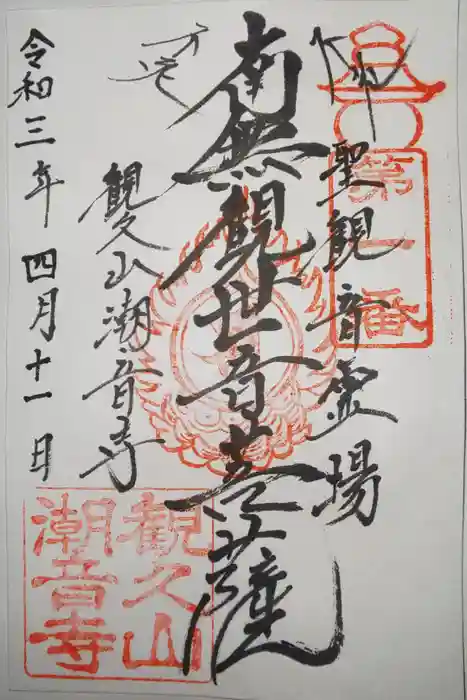 第一番
聖観音霊場
南無観世音菩薩
観久山潮音寺
令和三年四月十一日
観久山
潮音寺